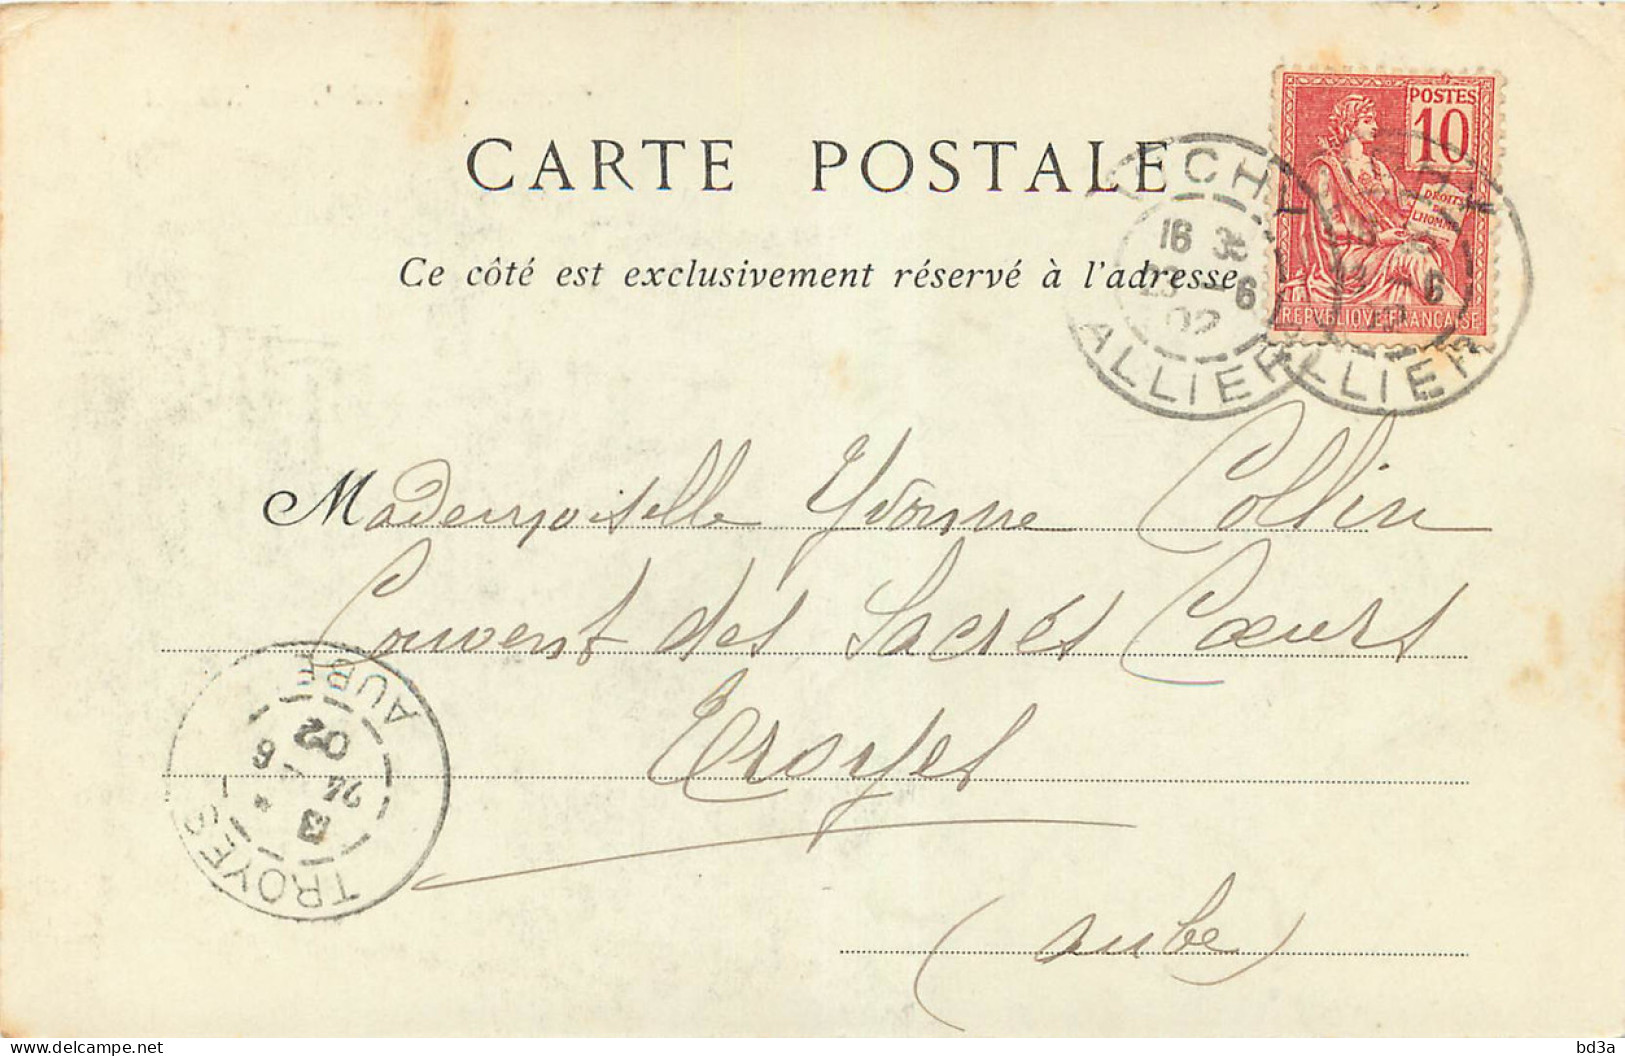 CARTE POSTALE
Ce côté est exclusivement réservé à l'adresse
POSTES
10
DROITS
DE
L'HOMME
REPVBLIQVE FRANÇAISE
16 35
6
02
ALLIER
6
ALLIER
Mademoiselle Yvonne Collin
Couvent des Sacrés Coeurs
Troyes
(Aube)
TROYES
3
24 6
02
AUBE
bd3a